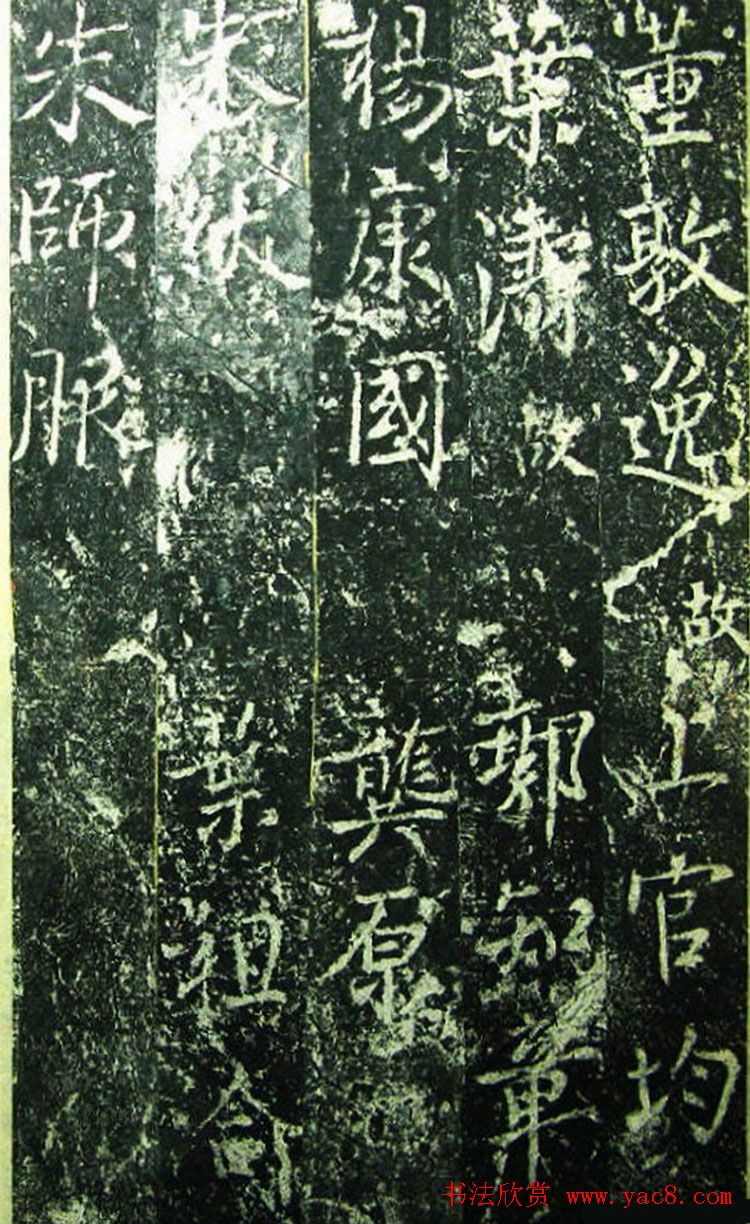 董敦逸 故 上官均
葉濤 故 郭知章
楊康國 龔原
朱紱 葉祖洽
朱師服
书法欣赏 www.yac8.com